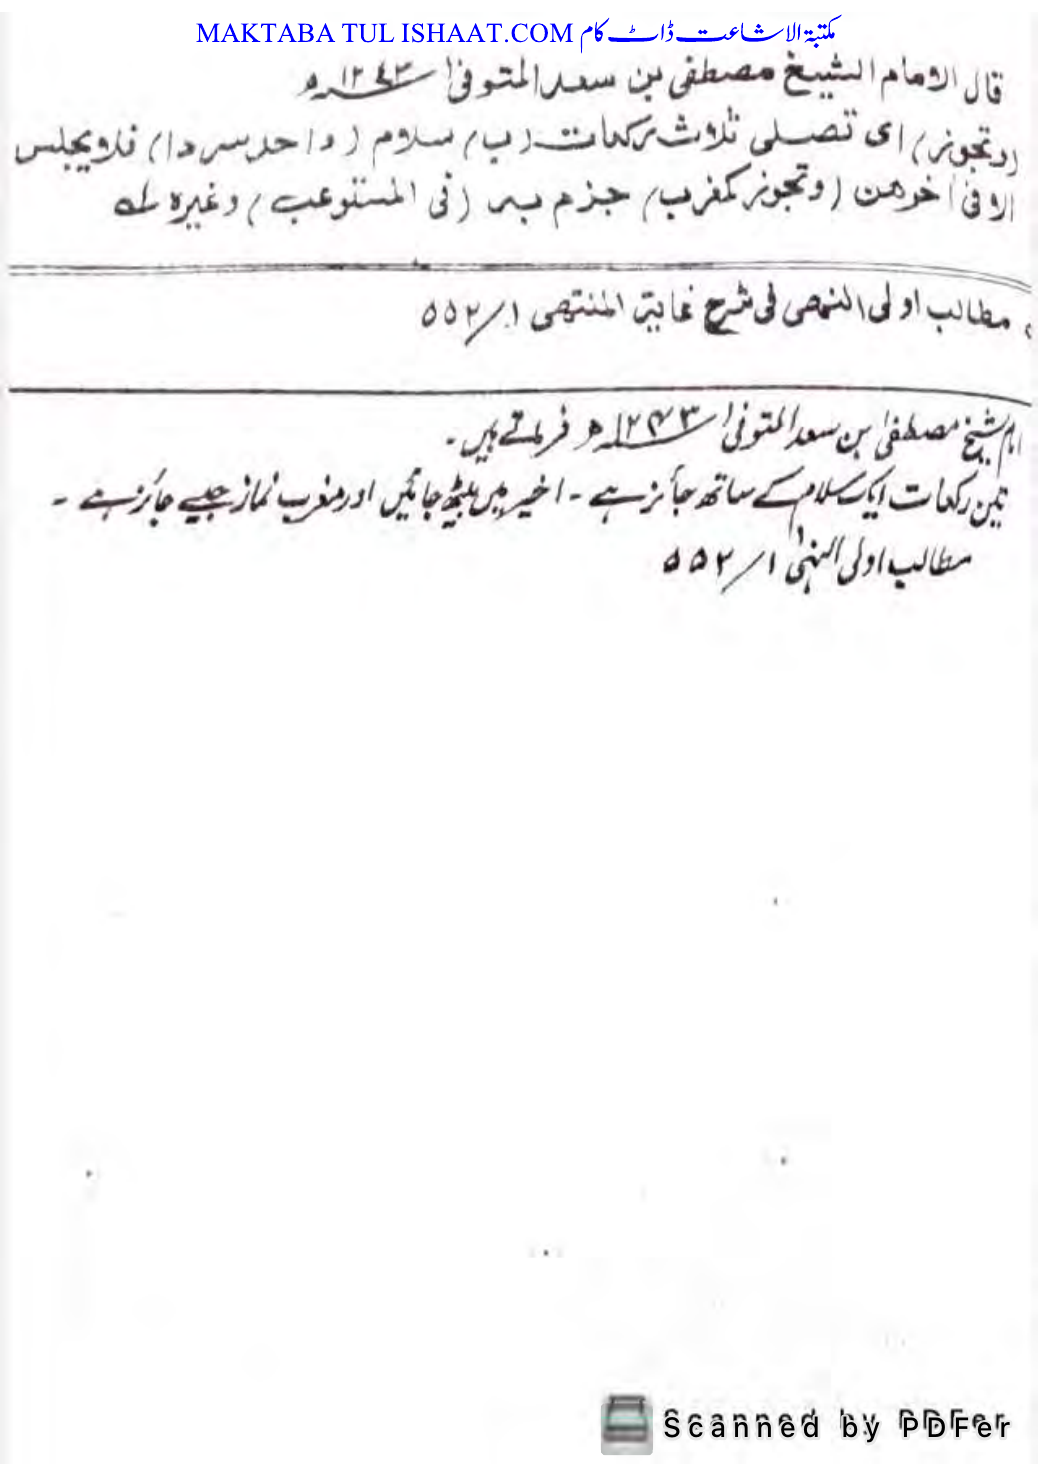 MAKTABA TUL ISHAAT.COM مکتبۃ الاشاعت ڈاٹ کام
قال الامام الشیخ مصطفی بن سعد المتوفیٰ ۱۲۴۳ھ
(و تجوز) ای تصلی ثلاث رکعات (ب) سلام (واحد سردا) فلا یجلس
الا فی اٰخرهن (و تجوز کمغرب) جزم به (فی المستوعب) وغیره
مطالب اولی النھی فی شرح غایۃ المنتھی ۱/۵۵۲
امام شیخ مصطفیٰ بن سعد المتوفیٰ ۱۲۴۳ھ فرماتے ہیں۔
تین رکعات ایک سلام کے ساتھ جائز ہے۔ اخیر میں بیٹھ جائیں اور مغرب نماز جیسے جائز ہے۔
مطالب اولی النہیٰ ۱/۵۵۲
Scanned by PDFer